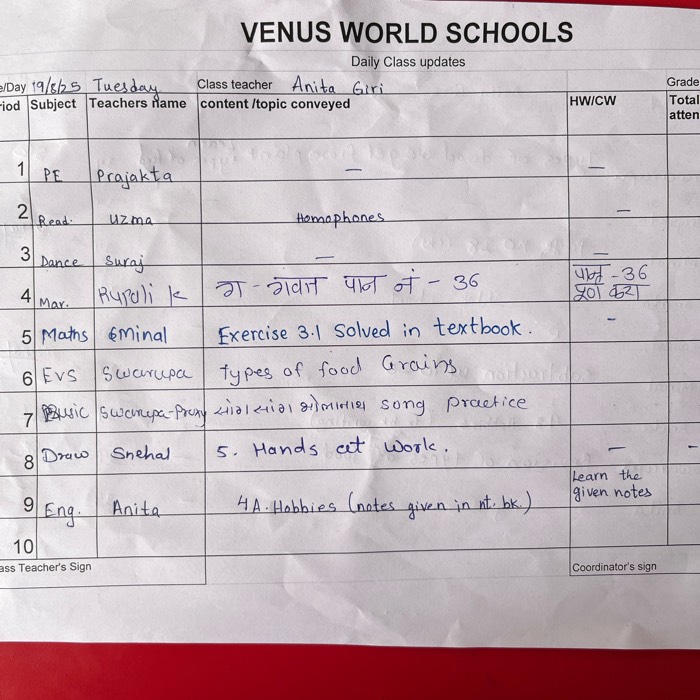 VENUS WORLD SCHOOLS
Daily Class updates
e/Day 19/8/25 Tuesday Class teacher Anita Giri Grade
riod Subject Teachers name content /topic conveyed HW/CW Total
atten
1 PE Prajakta — —
2 Read. uzma Homophones —
3 Dance Suraj — —
4 Mar. Rupali k ग - गवत पान नं - 36 पान - 36
पूर्ण करा
5 Maths Minal Exercise 3.1 solved in textbook. -
6 EVS Swarupa types of food Grains
7 Music Swarupa-Proxy song practice
8 Draw Snehal 5. Hands at work. — -
9 Eng. Anita 4A. Hobbies (notes given in nt. bk.) Learn the
given notes
10
ass Teacher's Sign Coordinator's sign